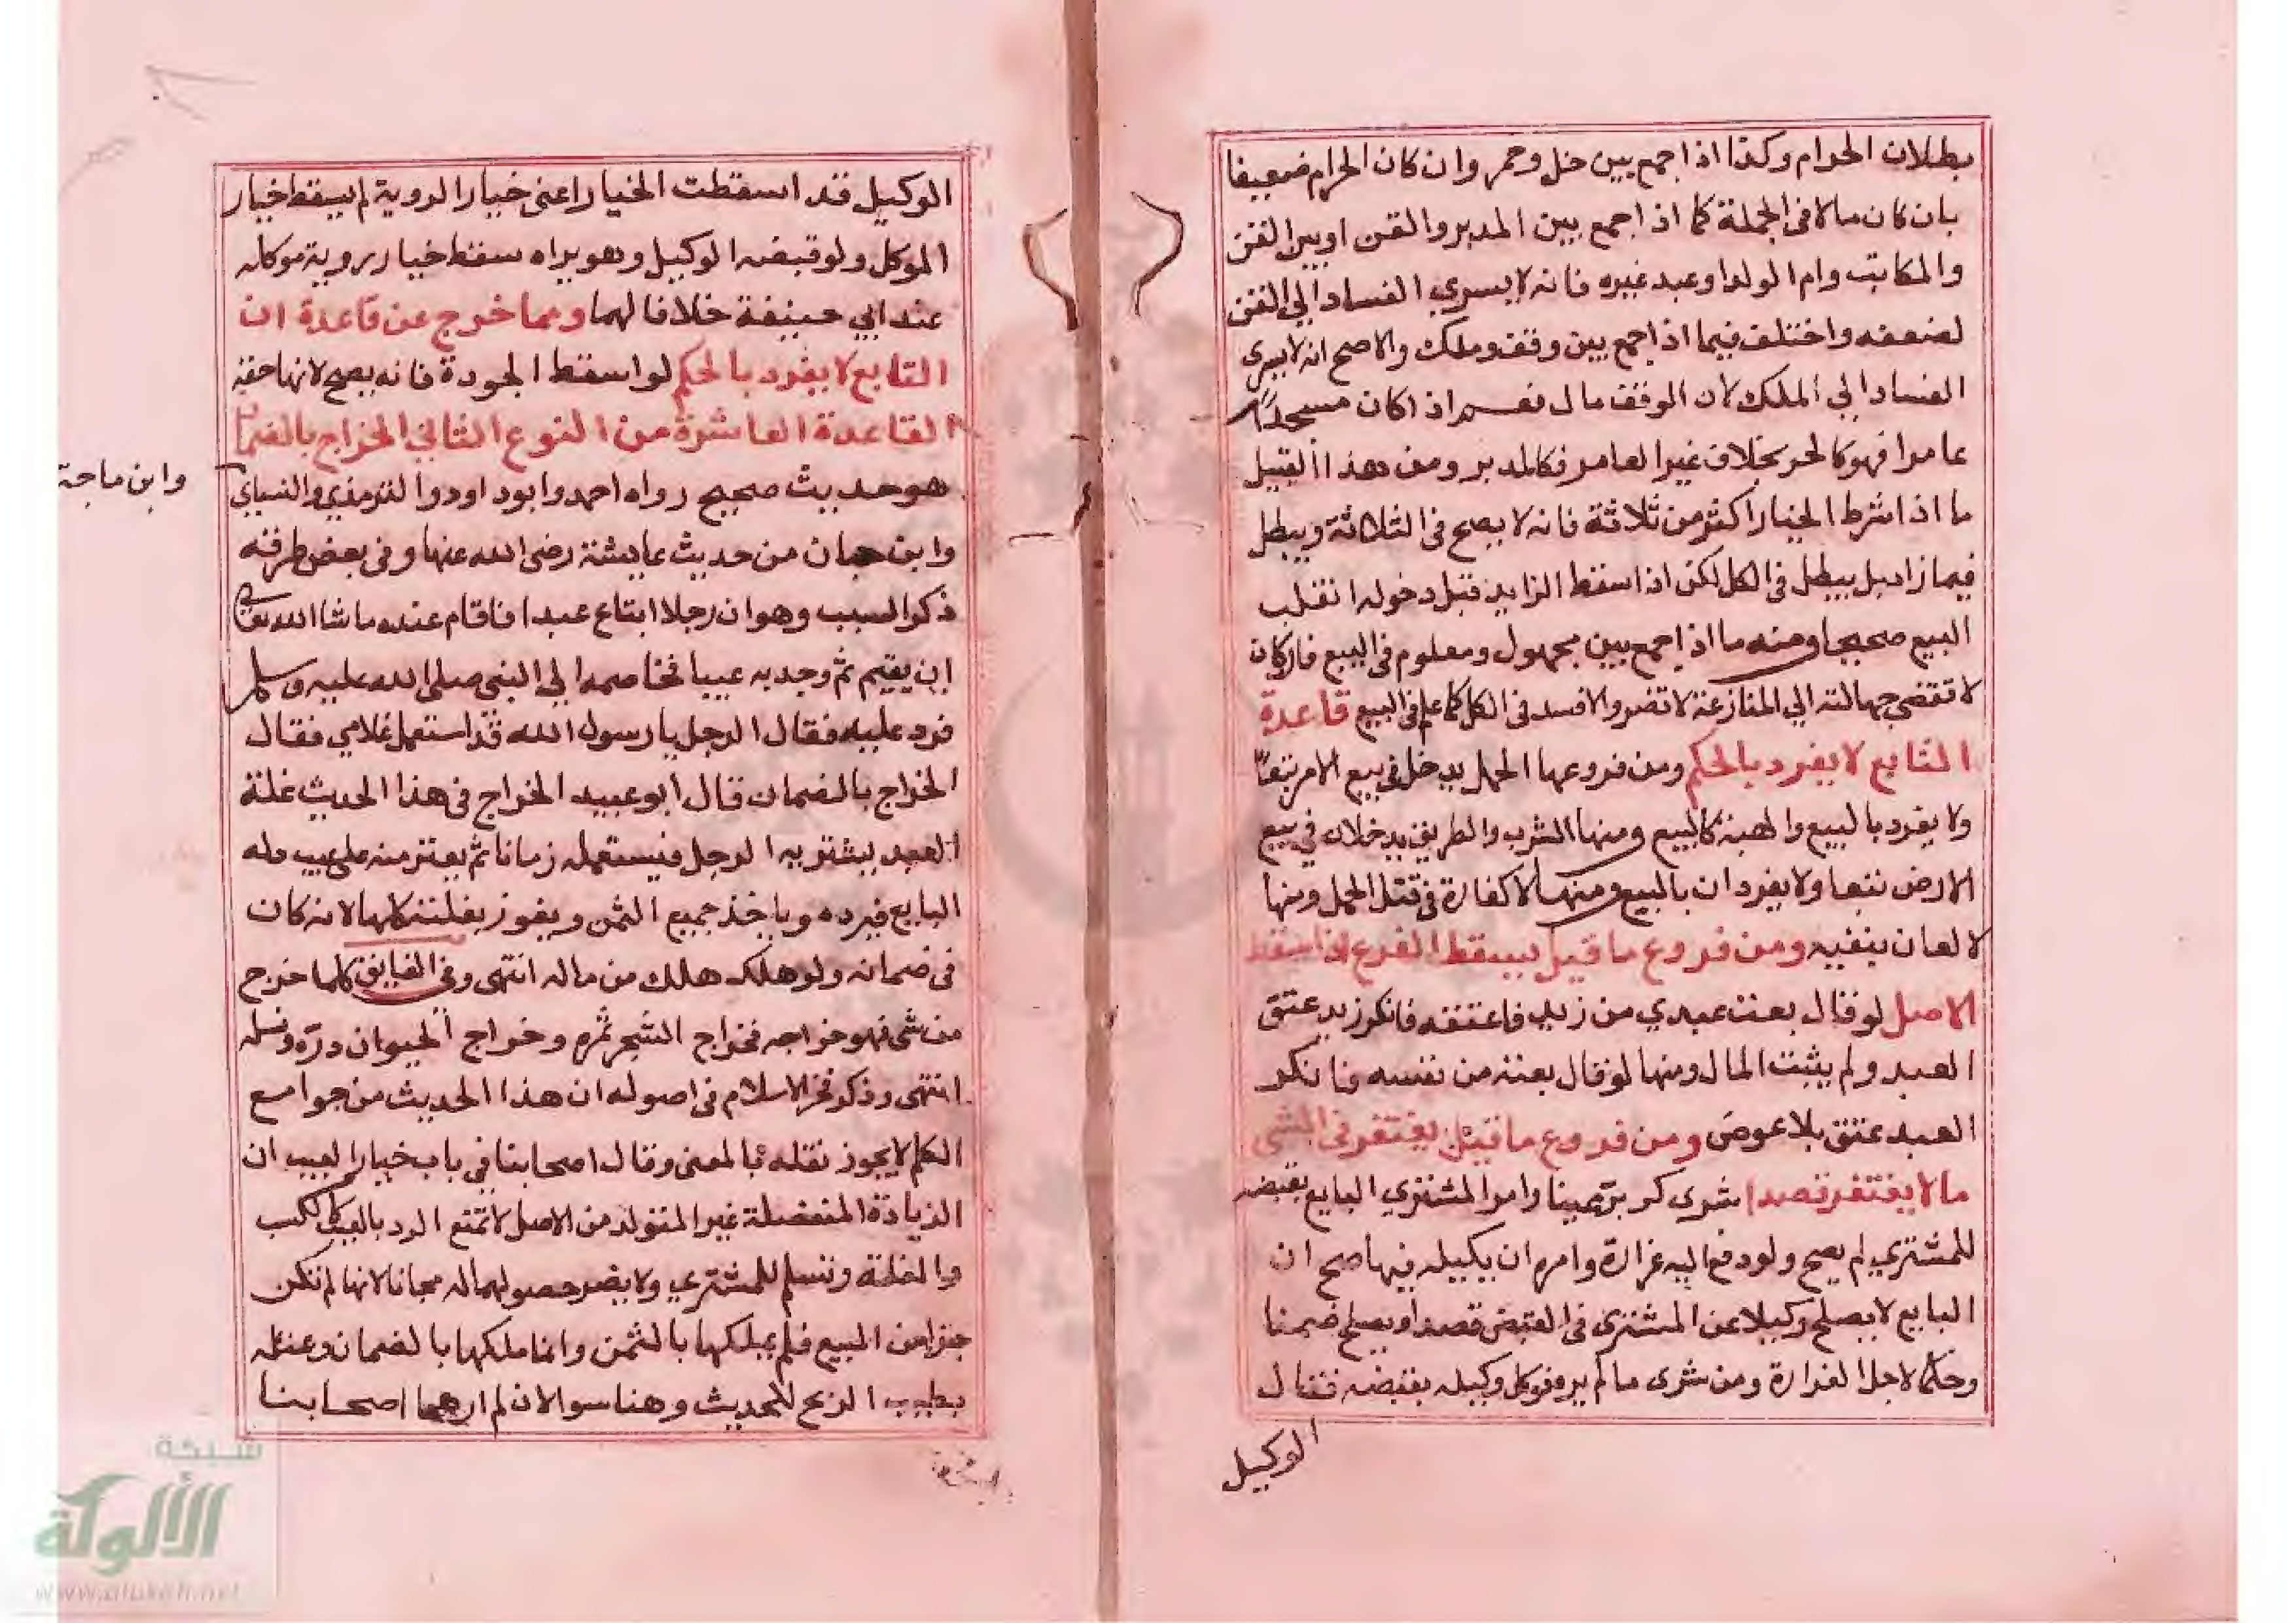 بطلان الحرام وكذا اذا جمع بين خل وخمر وان كان الحرام ضعيفا
بان كان مالا في الجملة كما اذا جمع بين المدبر والقن او بين القن
والمكاتب وام الولد او عبد غيره فانه لا يسري الفساد الي القن
لضعفه واختلف فيما اذا جمع بين وقف وملك والاصح انه لا يسري
الفساد الي الملك لان الوقف مال نعم اذا كان مسجدا
عامرا فهو كالحر بخلاف غير العامر فكالمدبر ومن هذا القبيل
ما اذا شرط الخيار اكثر من ثلاثة فانه لا يصح في الثلاثة ويبطل
فيما زاد بل يبطل في الكل لكن اذا اسقط الزايد قبل دخوله انقلب
البيع صحيحا ومنه ما اذا جمع بين مجهول ومعلوم في البيع فان كان
لا تفضي جهالته الي المنازعة لا تضر والا فسد في الكل كما علم في البيع قاعدة
التابع لا يفرد بالحكم ومن فروعها الحمل يدخل في بيع الام تبعا
ولا يفرد بالبيع والهبة كالبيع ومنها الشرب والطريق يدخلان في بيع
الارض تبعا ولا يفردان بالبيع ومنها لا كفارة في قتل الحمل ومنها
لا لعان بنفيه ومن فروع ما قيل يسقط الفرع اذا سقط
الاصل لو قال بعت عبدي من زيد فاعتقه فانكر زيد عتق
العبد ولم يثبت المال ومنها لو قال بعته من نفسه فانكر
العبد عتق بلا عوض ومن فروع ما قيل يغتفر في الشي
ما لا يغتفر قصدا شرى كر بر عينا وامر المشتري البايع بقبضه
للمشتري لم يصح ولو دفع اليه غرارة وامره ان يكيله فيها صح ان
البايع لا يصلح وكيلا عن المشتري في القبض قصدا ويصلح ضمنا
وحكما لاجل الغرارة ومن شرى ما لم يره فوكل وكيله بقبضه فقال
الوكيل
الوكيل قد اسقطت الخيار اعني خيار الروية لم يسقط خيار
الموكل ولو قبضه الوكيل وهو يراه سقط خيار روية موكله
عند ابي حنيفة خلافا لهما ومما خرج عن قاعدة ان
التابع لا يفرد بالحكم لو اسقط الجودة فانه يصح لانها حقه
القاعدة العاشرة من النوع الثاني الخراج بالضمان
هو حديث صحيح رواه احمد وابو داود والترمذي والنساي
وابن ماجة
وابن حبان من حديث عايشة رضى الله عنها وفي بعض طرقه
ذكر السبب وهو ان رجلا ابتاع عبدا فاقام عنده ما شا الله
ان يقيم ثم وجد به عيبا فخاصمه الي النبي صلى الله عليه وسلم
فرد عليه فقال الرجل يا رسول الله قد استعمل غلامي فقال
الخراج بالضمان قال ابو عبيد الخراج في هذا الحديث غلة
العبد يشتريه الرجل فيستعمله زمانا ثم يعثر منه على عيب دله
البايع فيرده وياخذ جميع الثمن ويفوز بغلته كلها لانه كان
في ضمانه ولو هلك هلك من ماله انتهى وفي الفايق كلما خرج
من شي فهو خراجه فخراج الشجر ثمره وخراج الحيوان دره ونسله
انتهى وذكر فخر الاسلام في اصوله ان هذا الحديث من جوامع
الكلم لا يجوز نقله بالمعنى وقال اصحابنا في باب خيار العيب ان
الزيادة المنفصلة غير المتولد من الاصل لا تمنع الرد بالعيب كالكسب
والغلة وتسلم للمشتري ولا يضر حصولهما له مجانا لانها لم تكن
جزا من المبيع فلم يملكها بالثمن وانما ملكها بالضمان وعثله
يطيب الربح للحديث وهنا سوالان لم ارهما اصحابنا
شبكة
الألوكة
www.alukah.net